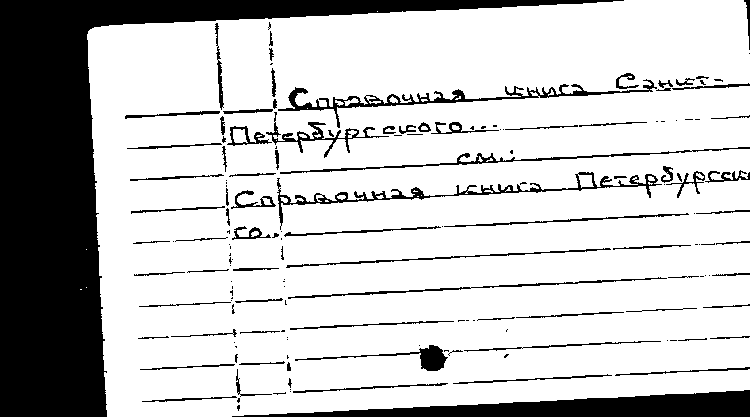 Справочная книга Санкт-
Петербургского...
см.:
Справочная книга Петербургско
го...